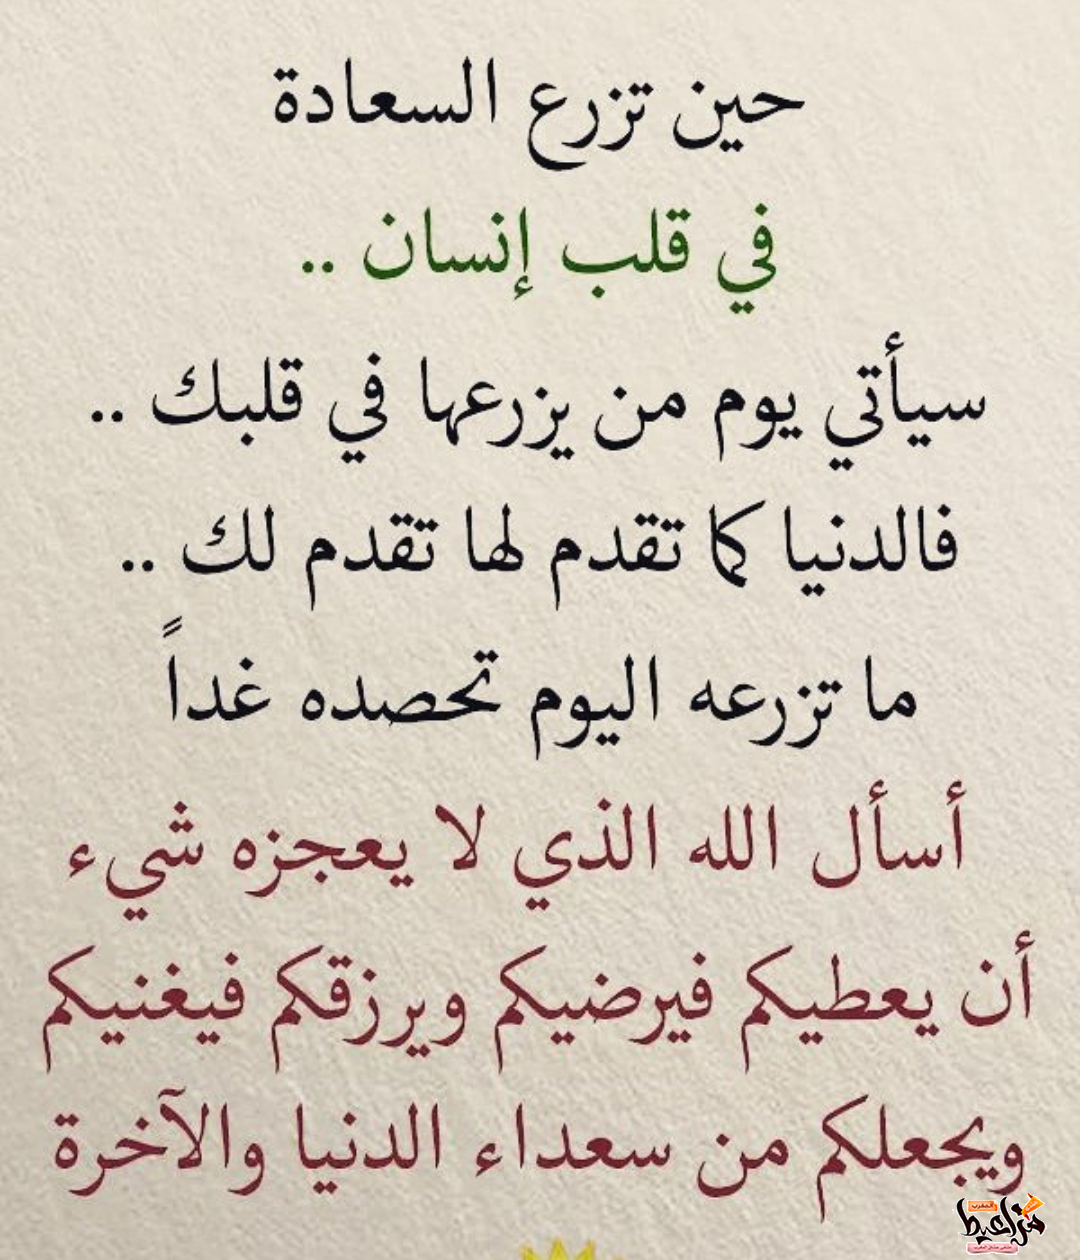 حين تزرع السعادة
في قلب إنسان ..
سيأتي يوم من يزرعها في قلبك ..
فالدنيا كما تقدم لها تقدم لك ..
ما تزرعه اليوم تحصده غداً
أسأل الله الذي لا يعجزه شيء
أن يعطيكم فيرضيكم ويرزقكم فيغنيكم
ويجعلكم من سعداء الدنيا والآخرة
المغرب